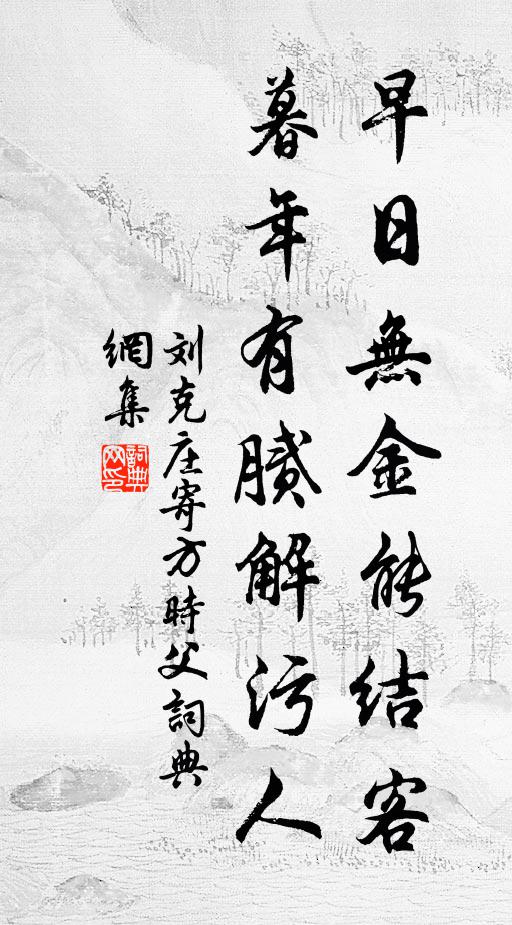 早日無金能结客
暮年有膩解污人
刘克庄寄方時父詞典
網集
詞典
网印